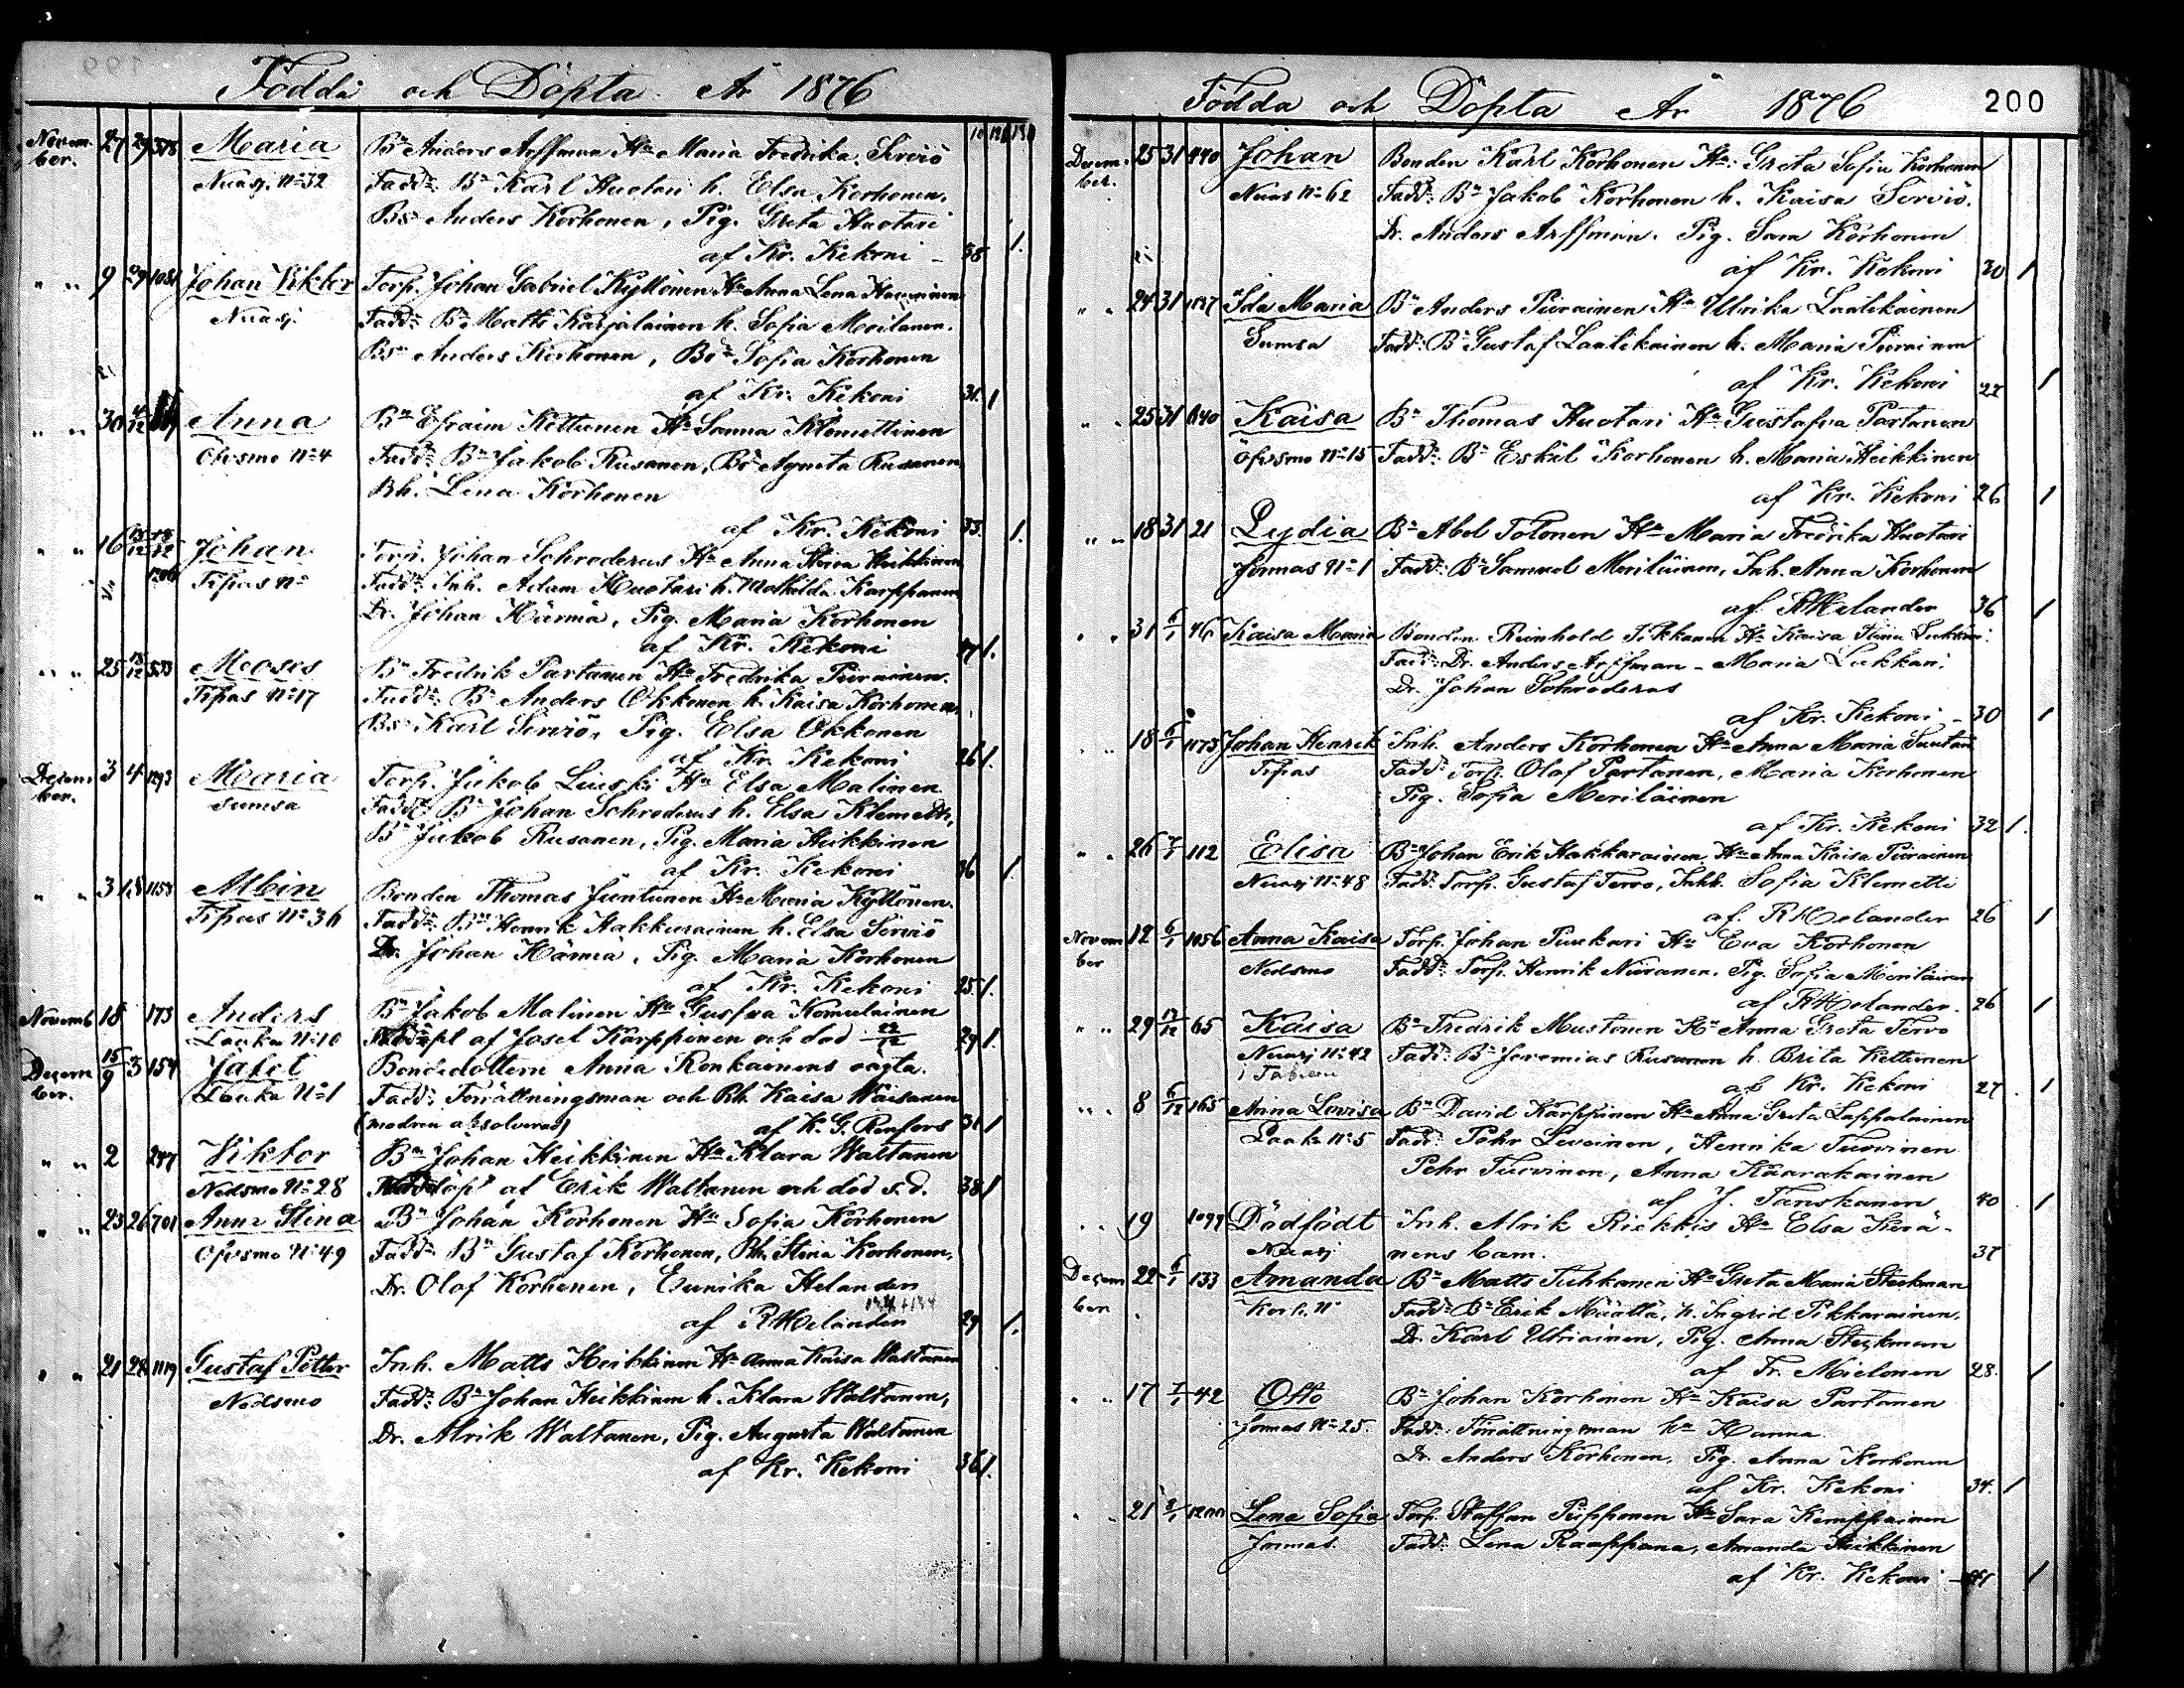 Födda och Döpta År 1876
Novem-
ber.
27 29 378 Maria Bn Anders Arffman Hu Maria Fredrika Serviö
Nuasj. No 32 Fadd: Bn Karl Huotari h. Elsa Korhonen,
Bs Anders Korhonen, Pig. Greta Huotari
af Kr. Kekoni 38 1.
" " 9 29 1081 Johan Viktor Torp. Johan Gabriel Kyllönen Hu Anna Lena
Nuasj. Fadd: Bn Matts Karjalainen h. Sofia Moilanen.
Bsn Anders Korhonen, Bdr Sofia Korhonen
af Kr. Kekoni 31. 1
" " 30 Anna Bn Efraim Kettunen Hu Sanna Klemettinen
Öfvsmo No 4 Fadd: Bn Jakob Rusanen, Bdr Agneta Rusanen
Bh. Lena Korhonen
af Kr. Kekoni 33. 1.
" " 16 Johan Torp. Johan Schroderus Hu Anna Heikkinen
Tipas No Fadd: Inh. Adam Huotari h. Mathilda Karppanen
Dr. Johan Härmä, Pig. Maria Korhonen
af Kr. Kekoni 47 1.
" " 25 533 Moses Bn Fredrik Partanen Hu Fredrika Piirainen.
Tipas No 17 Fadd: Bn Anders Okkonen h. Kaisa Korhonen,
Bs Karl Serviö, Pig. Elsa Okkonen
af Kr. Kekoni 26 1.
Decem
ber. 3 4 1293 Maria Torp. Jakob Liuski Hu Elsa Malinen
Sumsa Fadd: Bn Johan Schroderus h. Elsa Klemetti,
Bn Jakob Rusanen, Pig. Maria Heikkinen
af Kr. Kekoni 36 1.
" " 3 1158 Albin Bonden Thomas Juntunen Hu Maria Kyllönen.
Tipas No 36 Fadd: Bn Henrik Hakkarainen h. Elsa Serviö
Dr. Johan Härmä, Pig. Maria Korhonen
af Kr. Kekoni 25. 1.
Novemb 18 173 Anders Bn Jakob Malinen Hu Gustava Komulainen
Laaka No 10 Nöddöpt af Josef Karppinen och död 22/12 29 1.
Decem
ber. 15/9 3 154 Jafet Bondedottern Anna Ronkainens oägta.
Laaka No 1 Fadd: Förrättningsman och Bh Kaisa Wäisänen
(modren absolverad) af K. G. Renfors 31 1
" " 2 247 Viktor Bn Johan Heikkinen Hu Klara Waltanen
Nedsmo No 28 Nöddöpt af Erik Waltanen och död s.d. 38 1
" " 23 26 701 Anna Stina Bn Johan Korhonen Hu Sofia Korhonen
Öfvsmo No 49 Fadd: Bn Gustaf Korhonen, Bh. Stina Korhonen,
Dr. Olof Korhonen, Eunika Helander
af R Helander 29 1.
" " 21 28 1119 Gustaf Petter Inh. Matts Heikkinen Hu Anna Kaisa Waltanen
Nedsmo Fadd: Bn Johan Heikkinen h. Klara Waltanen,
Dr. Alrik Waltanen, Pig. Augusta Waltanen
af Kr. Kekoni 36 1.
Födda och Döpta År 1876 200
Decem-
ber. 25 31 440 Johan Bonden Karl Korhonen Hu: Greta Sofia Korhonen
Nuas No 62 Fadd: Bn Jakob Korhonen h. Kaisa Serviö.
Dr. Anders Arffman. Pig. Sara Korhonen
af Kr. Kekoni 30 1
" " 24 31 Ida Maria Bn Anders Piirainen Hu Ulrika Laatikainen
Sumsa Fadd: Bn Gustaf Laatikainen h. Maria Piirainen
af Kr. Kekoni 22 1
" " 25 31 Kaisa Bn Thomas Huotari Hu Gustafva Partanen
Öfvsmo No 15 Fadd: Bn Eskil Korhonen h. Maria Heikkinen
af Kr. Kekoni 26 1
" " 18 31 21 Lydia Bn Abel Tolonen Hu Maria Fredrika Huotari
Jormas No 1 Fadd: Bn Samuel Meriläinen, Inh. Anna Korhonen
af R Helander 36 1
" " 31 6/1 46 Kaisa Maria Bonden Reinhold Tikkanen Hu Kaisa Stina Lukkari
Fadd: Dr. Anders Arffman - Maria Lukkari,
Dr. Johan Schroderus
af Kr. Kekoni 30 1
" " 18 6/1 1175 Johan Henrik Inh. Anders Korhonen Hu Anna Maria Suutari
Tipas Fadd: Torp. Olof Partanen, Maria Korhonen
Pig. Sofia Meriläinen
af Kr. Kekoni 32 1.
" " 26 7/1 112 Elisa Bn Johan Erik Hakkarainen Hu Anna Kaisa Piirainen
Nuasj No 48 Fadd: Torp. Gustaf Tervo, Inhh. Sofia Klemetti
af R Helander 26 1
Novem
ber 12 6/1 1056 Anna Kaisa Torp. Johan Puukari Hu Eva Korhonen
Nedsmo Fadd: Torp. Henrik Niiranen, Pig. Sofia Meriläinen
af R Helander 26 1
" " 29 17/12 65 Kaisa Bn Fredrik Mustonen Hu Anna Greta Tervo
Nuasj No 42 Fadd: Bn Jeremias Rusanen h. Brita Kettunen
af Kr. Kekoni 27 1
" " 8 6/12 165 Anna Lovisa Bn David Karppinen Hu Anna Greta Lappalainen
Laaka No 5 Fadd: Pehr Leveinen, Henrika Turvinen
Pehr Turvinen, Anna Käärakainen
af J. Tanskanen 40 1
" " 19 1099 Dödfödt Inh. Alrik Riekkis Hu Elsa Kerä-
Nuasj nens barn. 37
Decem
ber 22 6/1 133 Amanda Bn Matts Tuhkanen Hu Greta Maria Steckman
Korh. No Fadd: Bn Erik Määttä, h. Ingrid Pikkarainen,
Dr. Karl Utriainen, Pig. Anna Steckman
af Fr. Mielonen 28. 1
" " 17 7/1 42 Otto Bn Johan Korhonen Hu Kaisa Partanen
Jormas No 25. Fadd: Förrättningsman hu Hanna
Dr. Anders Korhonen, Pig. Anna Korhonen
af Kr. Kekoni 34. 1
" " 21 Lena Sofia Torp. Staffan Piipponen Hu Sara Kemppainen
Jormas. Fadd: Lena Raappana, Amanda Heikkinen
af Kr. Kekoni 41 1